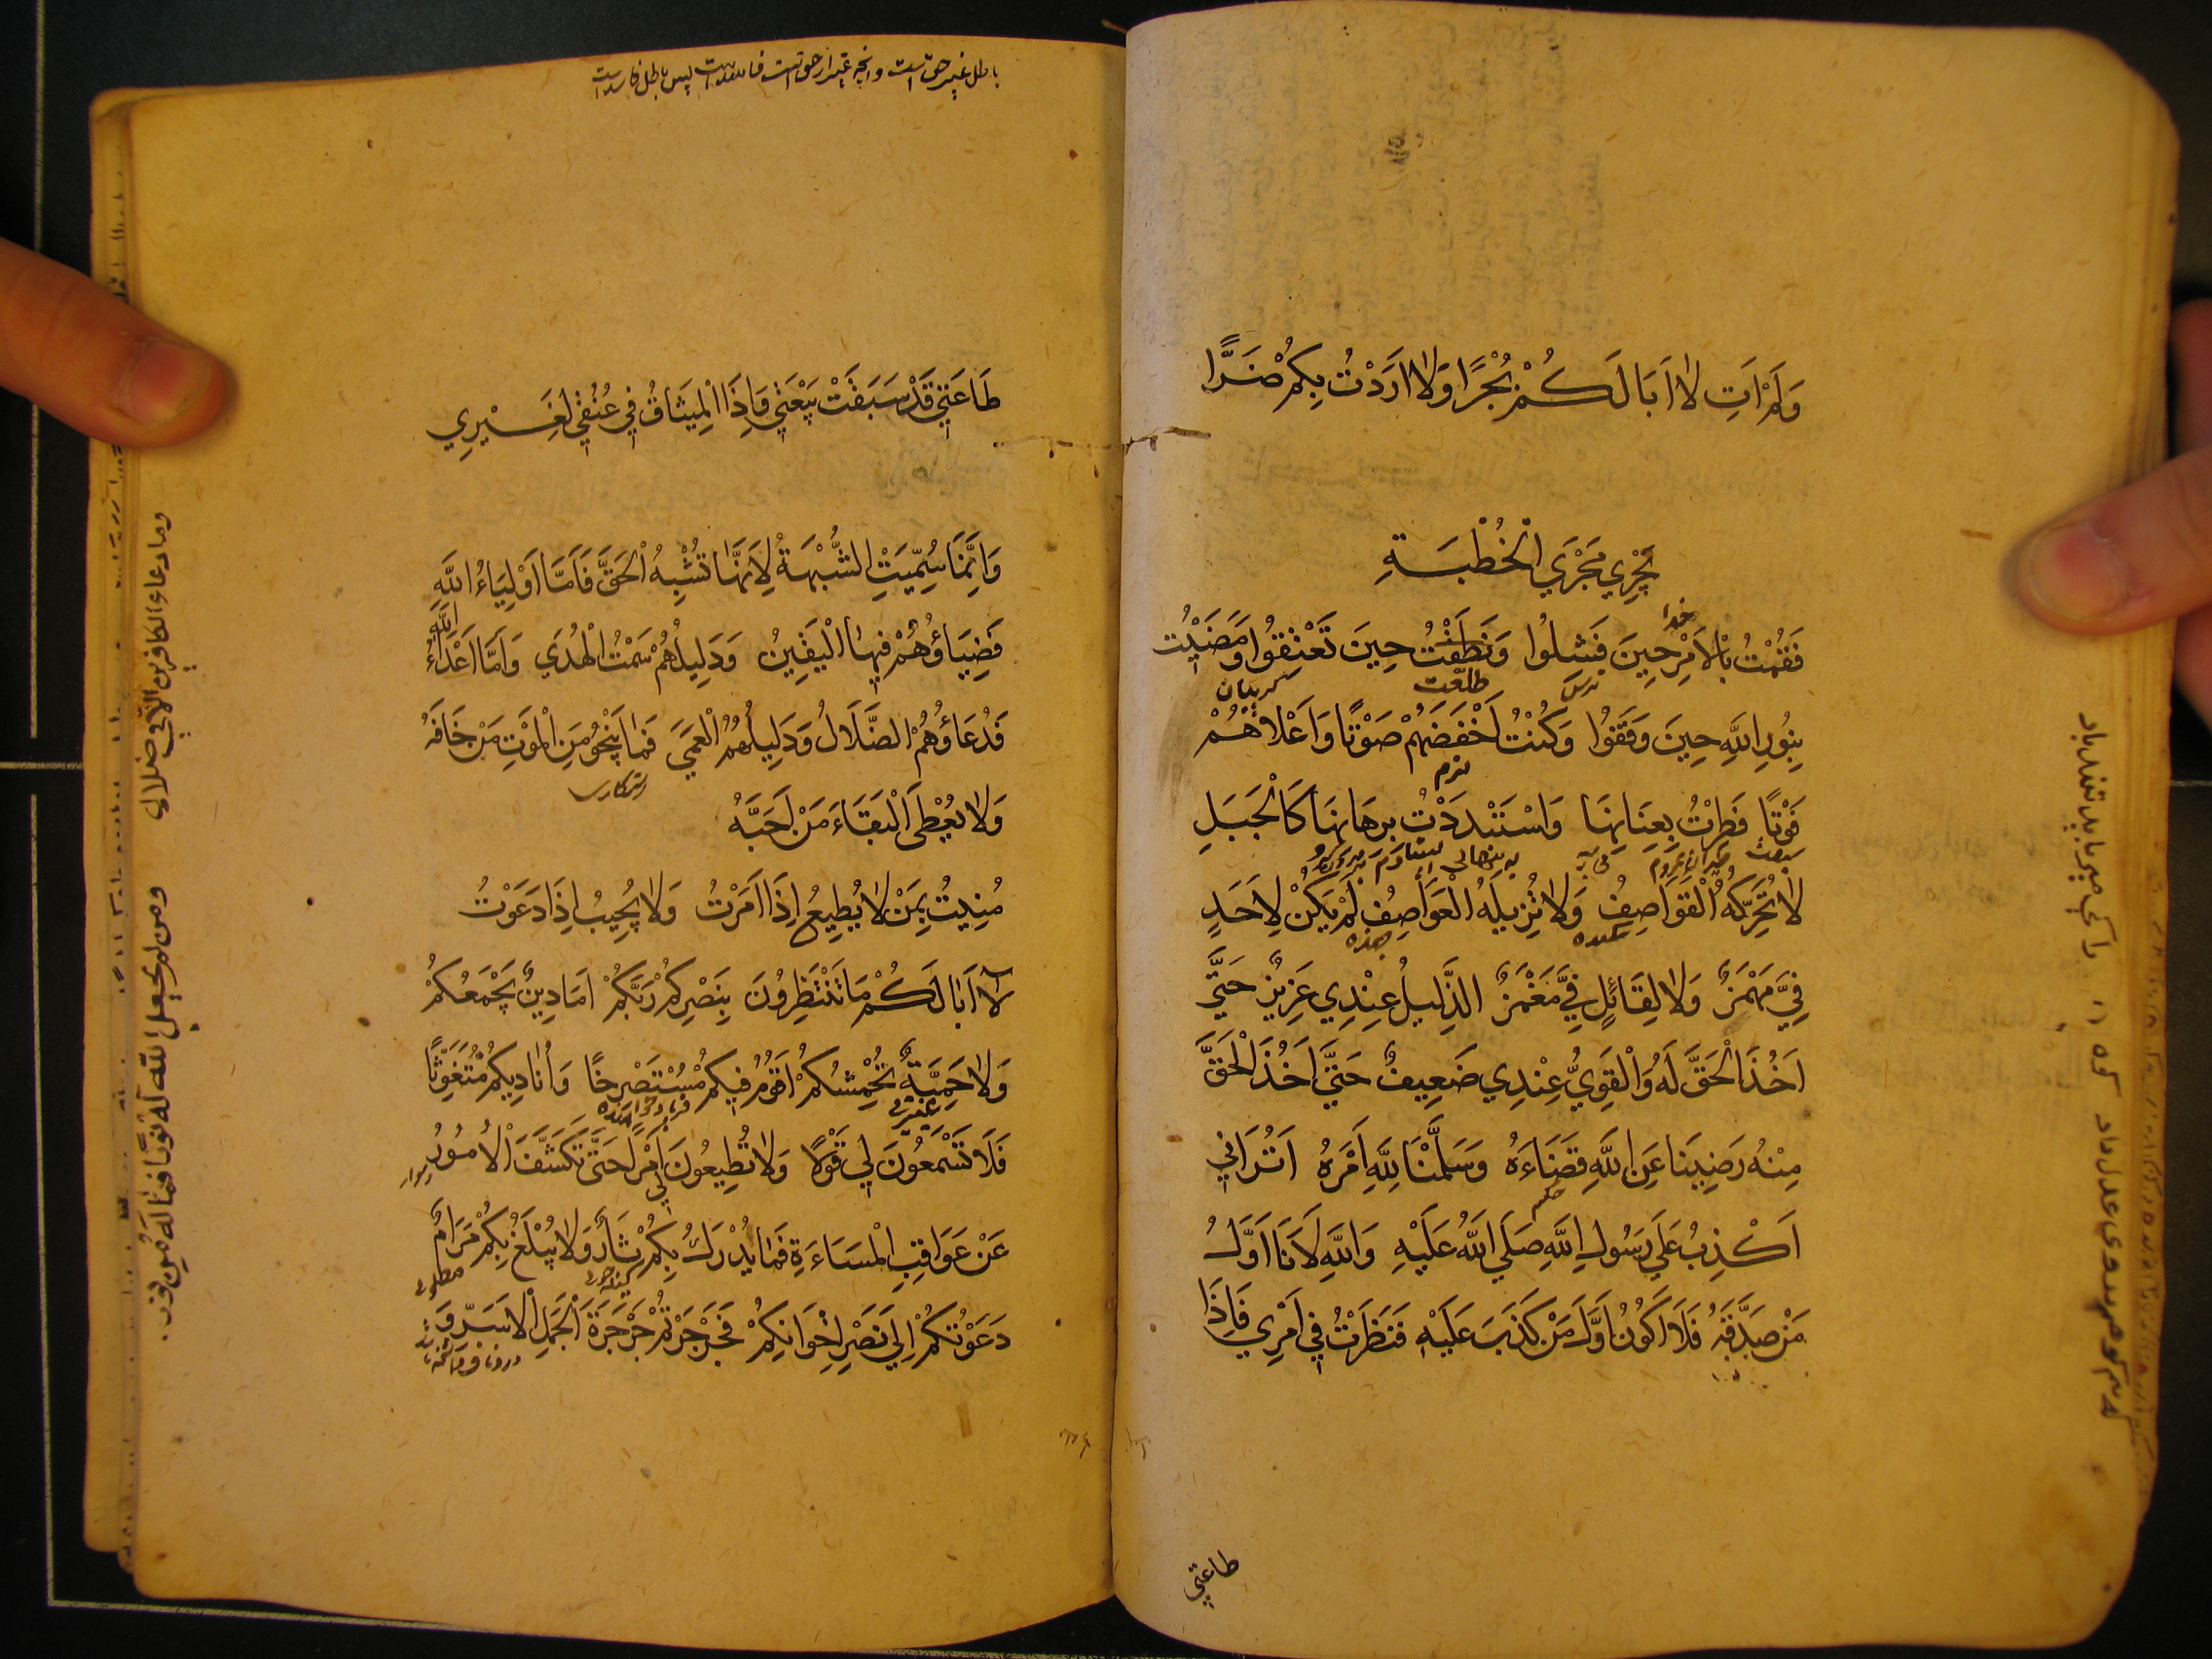 وَلَمْ اٰتِ لَا اَبَا لَكُمْ بُجْرًا وَلَا اَرَدْتُ بِكُمْ ضَرًّا
يَجْرِي مَجْرَي الْخُطْبَةِ
فَقُمْتُ بِالْاَمْرِ حِينَ فَشِلُوا وَنَطَقْتُ حِينَ تَعْتَقُوا وَمَضَيْتُ
بِنُورِ اللّٰهِ حِينَ وَقَفُوا وَكُنْتُ اَخْفَضَهُمْ صَوْتًا وَاَعْلَاهُمْ
فَوْتًا فَطِرْتُ بِعِنَانِهَا وَاسْتَبْدَدْتُ بِرِهَانِهَا كَالْجَبَلِ
لَا تُحَرِّكُهُ الْقَوَاصِفُ وَلَا تُزِيلُهُ الْعَوَاصِفُ لَمْ يَكُنْ لِاَحَدٍ
فِيَّ مَهْمَزٌ وَلَا لِقَائِلٍ فِيَّ مَغْمَزٌ الذَّلِيلُ عِنْدِي عَزِيزٌ حَتَّي
اَخُذَ الْحَقَّ لَهُ وَالْقَوِيُّ عِنْدِي ضَعِيفٌ حَتَّي اَخُذَ الْحَقَّ
مِنْهُ رَضِينَا عَنِ اللّٰهِ قَضَاءَهُ وَسَلَّمْنَا لِلّٰهِ اَمْرَهُ اَتُرَانِي
اَكْذِبُ عَلَي رَسُولِ اللّٰهِ صَلَي اللّٰهُ عَلَيْهِ وَاللّٰهِ لَاَنَا اَوَّلُ
مَنْ صَدَّقَهُ فَلَا اَكُونُ اَوَّلَ مَنْ كَذَبَ عَلَيْهِ فَنَظَرْتُ فِي اَمْرِي فَاِذَا
طاعتي
باطل غیر حق است وانچه غیر از حق است فاسد است پس باطل فاسد است
طَاعَتِي قَدْ سَبَقَتْ بَيْعَتِي وَاِذَا الْمِيثَاقُ فِي عُنُقِي لِغَيْرِي
وَاِنَّمَا سُمِّيَتِ الشُّبْهَةُ لِاَنَّهَا تُشْبِهُ الْحَقَّ فَاَمَّا اَوْلِيَاءُ اللّٰهِ
فَضِيَاؤُهُمْ فِيهَا الْيَقِينُ وَدَلِيلُهُمْ سَمْتُ الْهُدَي وَاَمَّا اَعْدَاءُ اللّٰهِ
فَدُعَاؤُهُمُ الضَّلَالُ وَدَلِيلُهُمُ الْعَمَي فَمَا يَنْجُو مِنَ الْمَوْتِ مَنْ خَافَهُ
وَلَا يُعْطَي الْبَقَاءَ مَنْ اَحَبَّهُ
مُنِيتُ بِمَنْ لَا يُطِيعُ اِذَا اَمَرْتُ وَلَا يُجِيبُ اِذَا دَعَوْتُ
لَا اَبَا لَكُمْ مَا تَنْتَظِرُونَ بِنَصْرِكُمْ رَبَّكُمْ اَمَا دِينٌ يَجْمَعُكُمْ
وَلَا حَمِيَّةٌ تُحْمِشُكُمْ اَقُومُ فِيكُمْ مُسْتَصْرِخًا وَاُنَادِيكُمْ مُتَغَوِّثًا
فَلَا تَسْمَعُونَ لِي قَوْلًا وَلَا تُطِيعُونَ لِي اَمْرًا حَتَّي تَكَشَّفَ الْاُمُورُ
عَنْ عَوَاقِبِ الْمَسَاءَةِ فَمَا يُدْرَكُ بِكُمْ ثَارٌ وَلَا يُبْلَغُ بِكُمْ مَرَامٌ
دَعَوْتُكُمْ اِلَي نَصْرِ اِخْوَانِكُمْ فَجَرْجَرْتُمْ جَرْجَرَةَ الْجَمَلِ الْاَسَرِّ وَ
وما دعاء الكافرين الا في ضلال
ومن لم يجعل الله له نورا فما له من نور